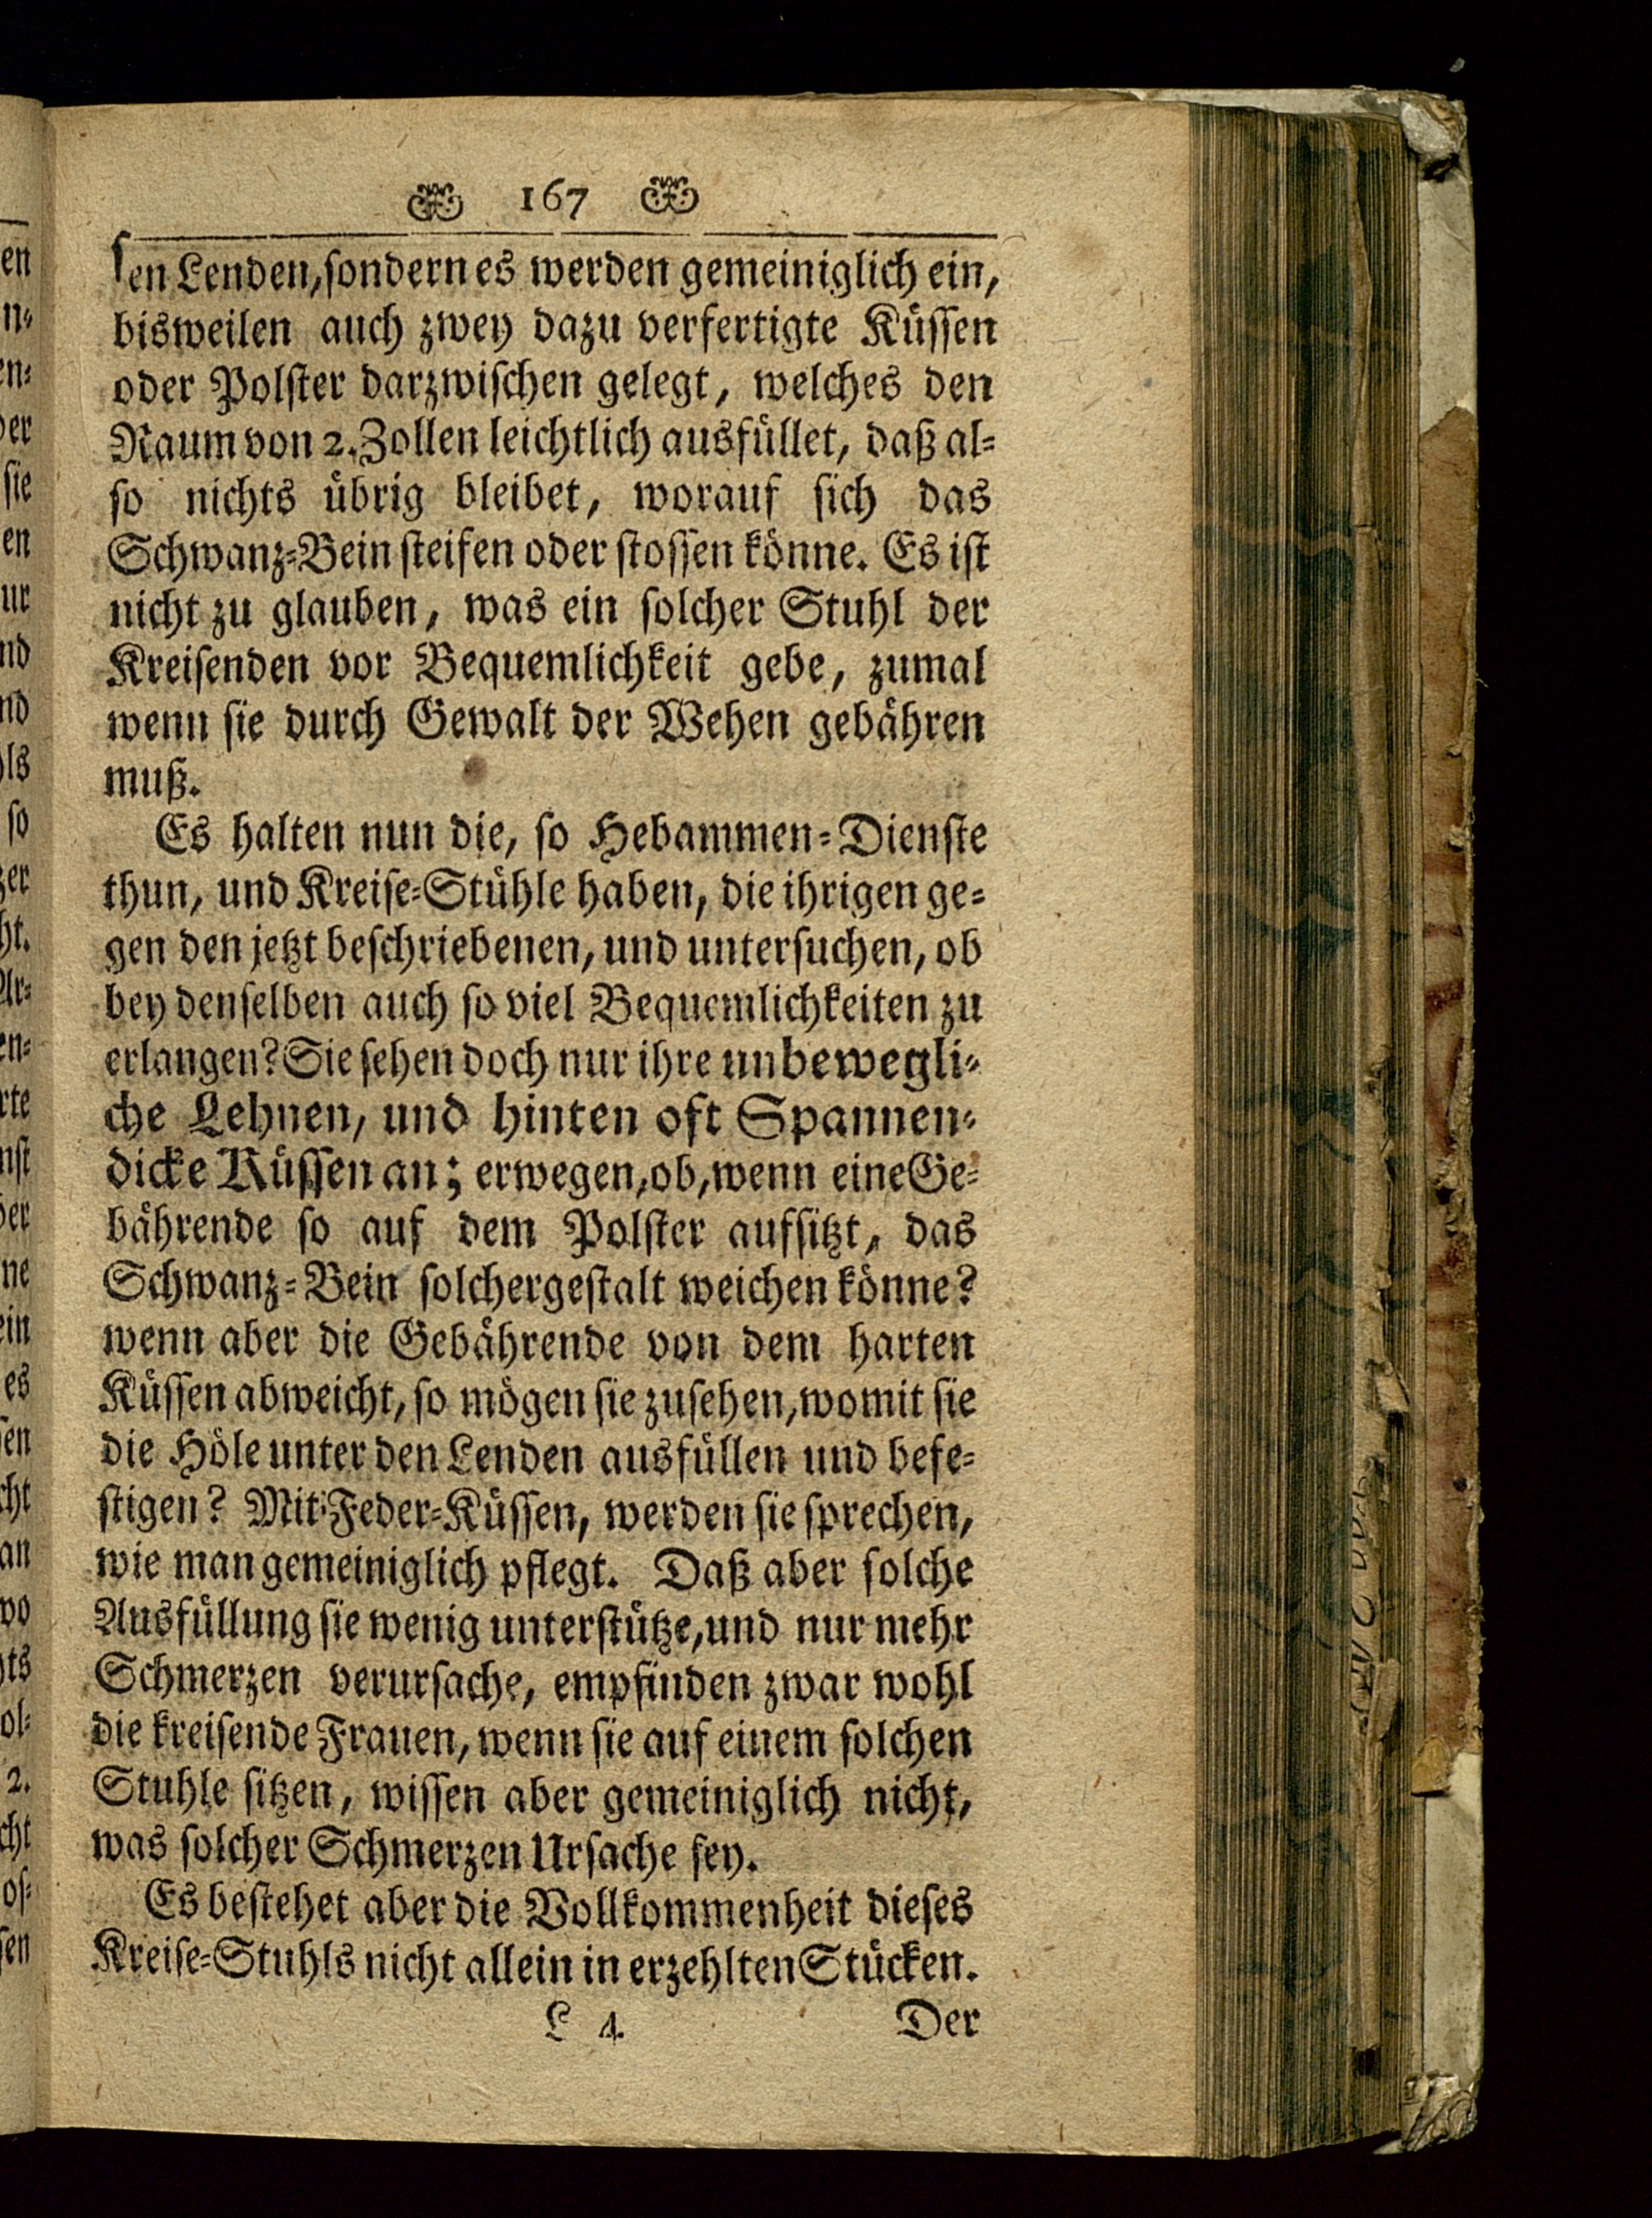 167
sen Lenden, sondern es werden gemeiniglich ein,
bisweilen auch zwey dazu verfertigte Küssen
oder Polster darzwischen gelegt, welches den
Raum von 2. Zollen leichtlich ausfüllet, daß al-
so nichts übrig bleibet, worauf sich das
Schwanz-Bein steifen oder stossen könne. Es ist
nicht zu glauben, was ein solcher Stuhl der
Kreisenden vor Bequemlichkeit gebe, zumal
wenn sie durch Gewalt der Wehen gebähren
muß.
Es halten nun die, so Hebammen-Dienste
thun, und Kreise-Stühle haben, die ihrigen ge-
gen den jetzt beschriebenen, und untersuchen, ob
bey denselben auch so viel Bequemlichkeiten zu
erlangen? Sie sehen doch nur ihre unbewegli-
che Lehnen, und hinten oft Spannen-
dicke Küssen an; erwegen, ob, wenn eine Ge-
bährende so auf dem Polster aufsitzt, das
Schwanz-Bein solchergestalt weichen könne?
wenn aber die Gebährende von dem harten
Küssen abweicht, so mögen sie zusehen, womit sie
die Höle unter den Lenden ausfüllen und befe-
stigen? Mit Feder-Küssen, werden sie sprechen,
wie man gemeiniglich pflegt. Daß aber solche
Ausfüllung sie wenig unterstütze, und nur mehr
Schmerzen verursache, empfinden zwar wohl
die kreisende Frauen, wenn sie auf einem solchen
Stuhle sitzen, wissen aber gemeiniglich nicht,
was solcher Schmerzen Ursache sey.
Es bestehet aber die Vollkommenheit dieses
Kreise-Stuhls nicht allein in erzehlten Stücken.
L 4 Der